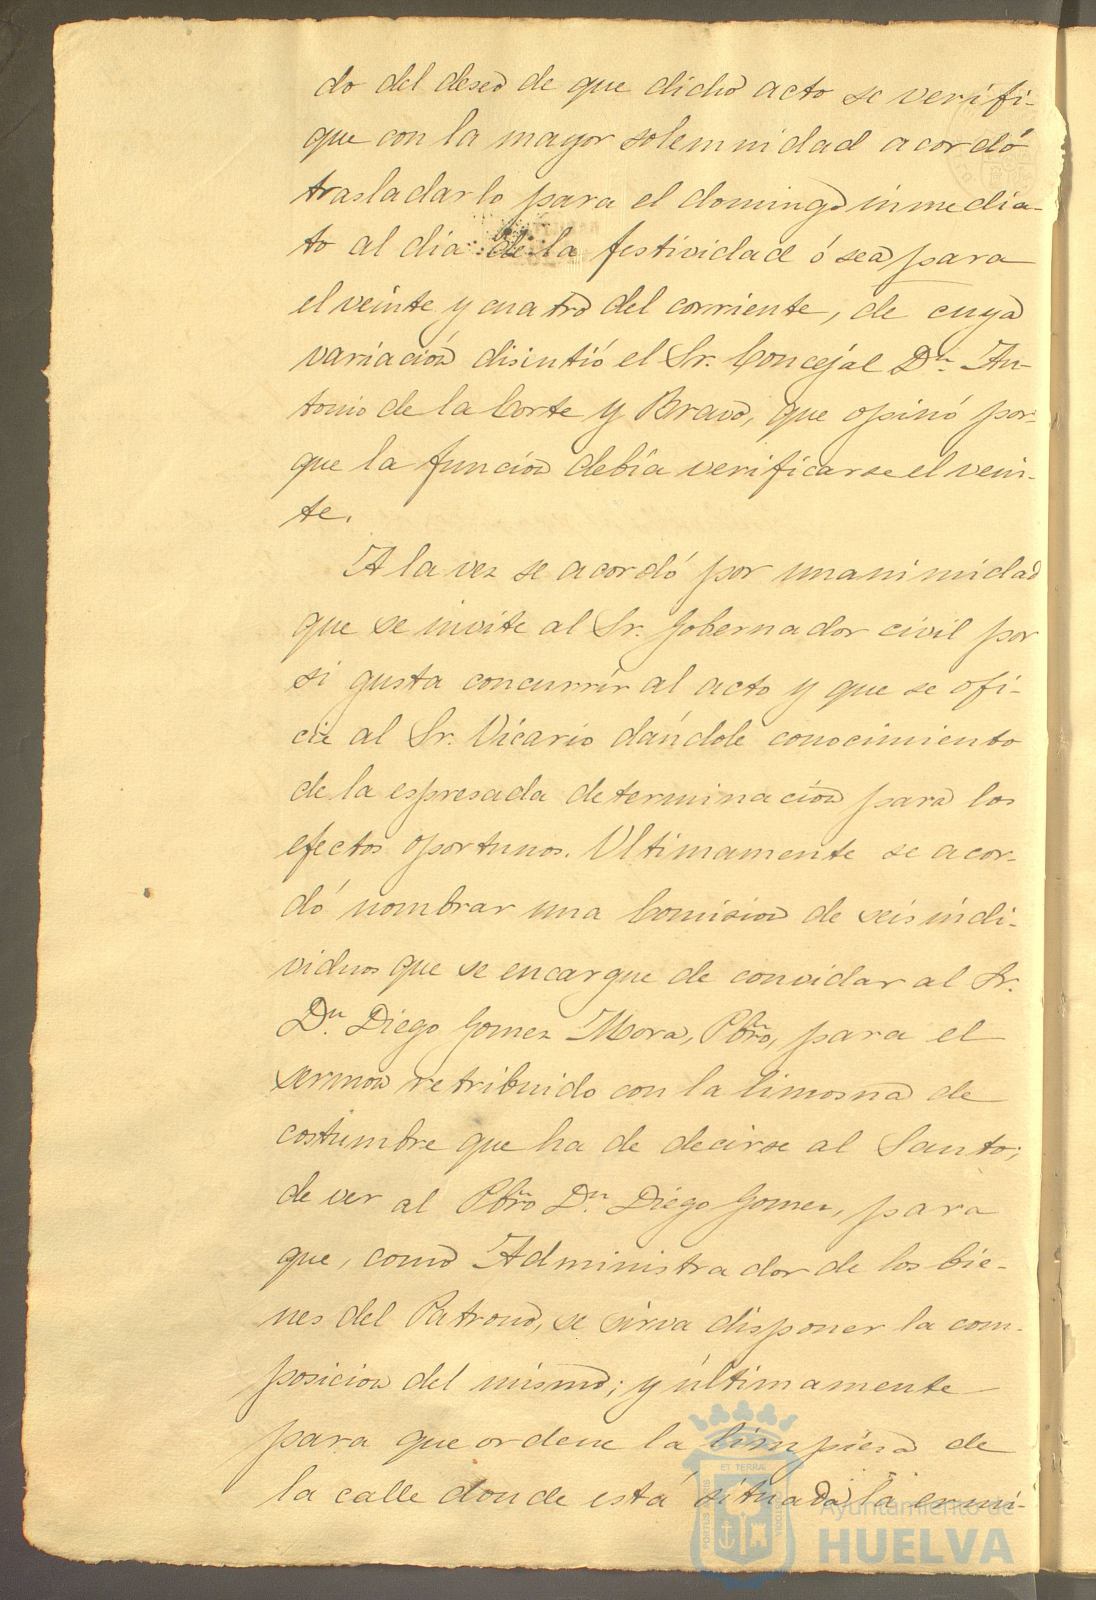 do del deseo de que dicho acto se verifi-
que con la mayor solemnidad acordó
trasladarlo para el domingo inmedia-
to al dia de la festividad ó sea para
el veinte y cuatro del corriente, de cuya
variación disintió el Sr. Concejal Dn. An-
tonio de la Corte y Bravo, que opinó por-
que la función debía verificarse el vein-
te.
A la vez se acordó por unanimidad
que se invite al Sr. Gobernador civil por
si gusta concurrir al acto y que se ofi-
cie al Sr. Vicario dándole conocimiento
de la espresada determinación para los
efectos oportunos. Ultimamente se acor-
dó nombrar una Comision de seis indi-
viduos que se encargue de convidar al Sr.
Dn. Diego Gomez Mora, Pbro, para el
sermon retribuido con la limosna de
costumbre que ha de decirse al Santo;
de ver al Pbro Dn. Diego Gomez, para
que, como Administrador de los bie-
nes del Patrono, se sirva disponer la com-
posicion del mismo; y últimamente
para que ordene la limpieza de
la calle donde está situada la ermi-
ET TERRAE
Ayuntamiento de
HUELVA